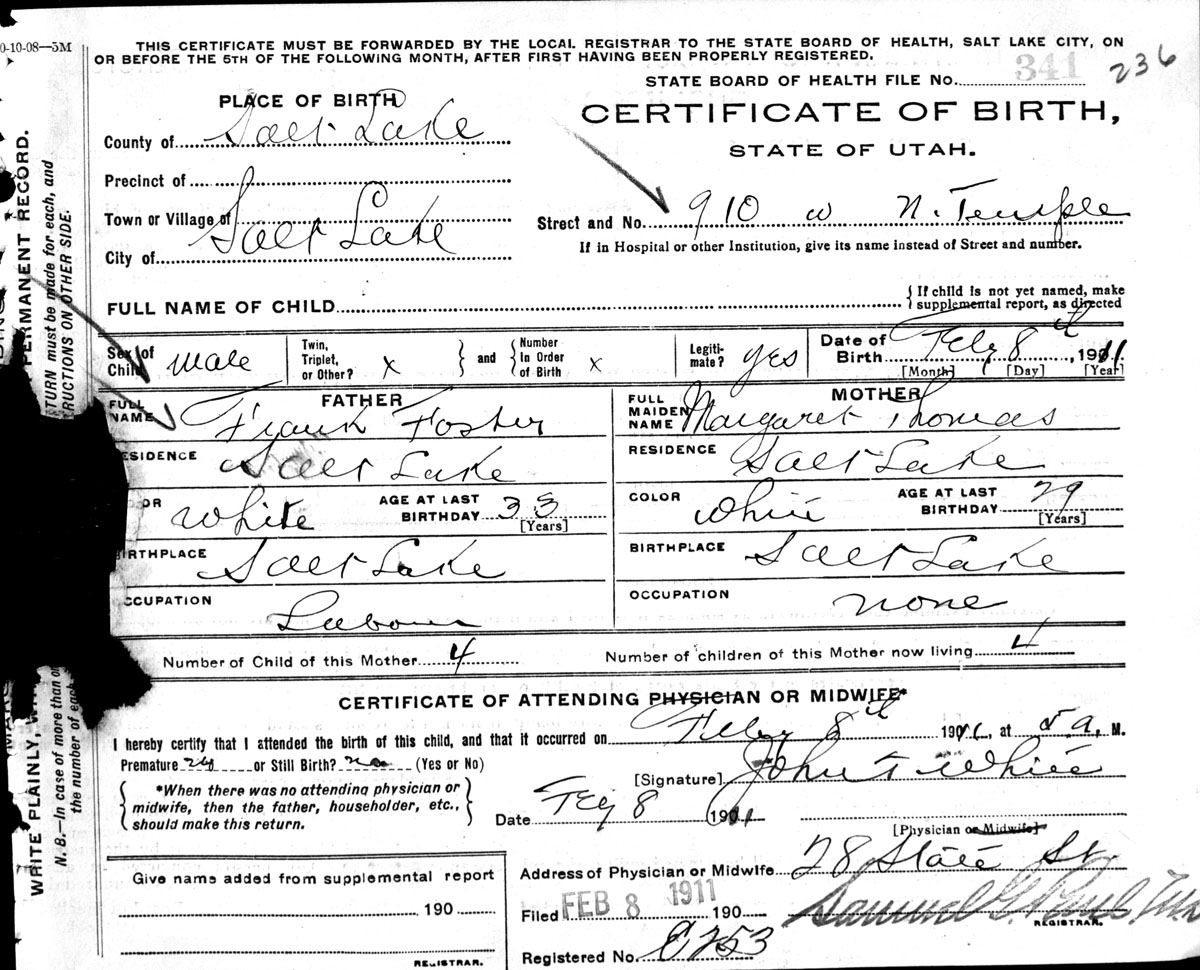 0-10-08—5M
THIS CERTIFICATE MUST BE FORWARDED BY THE LOCAL REGISTRAR TO THE STATE BOARD OF HEALTH, SALT LAKE CITY, ON
OR BEFORE THE 5TH OF THE FOLLOWING MONTH, AFTER FIRST HAVING BEEN PROPERLY REGISTERED.
STATE BOARD OF HEALTH FILE No. 341 236
PLACE OF BIRTH
CERTIFICATE OF BIRTH,
County of Salt Lake
STATE OF UTAH.
Precinct of
Town or Village of
Street and No. 910 w N. Temple
City of Salt Lake
If in Hospital or other Institution, give its name instead of Street and number.
FULL NAME OF CHILD
{ If child is not yet named, make
supplemental report, as directed
Sex of Child male
Twin, Triplet, or Other? x } and { Number In Order of Birth x
Legiti-mate? yes
Date of Birth Feby 8th, 1911
[Month] [Day] [Year]
FATHER
MOTHER
FULL NAME Frank Foster
FULL MAIDEN NAME Margaret Thomas
RESIDENCE Salt Lake
RESIDENCE Salt Lake
OR White AGE AT LAST BIRTHDAY 33 [Years]
COLOR White AGE AT LAST BIRTHDAY 29 [Years]
BIRTHPLACE Salt Lake
BIRTHPLACE Salt Lake
CCUPATION Labour
OCCUPATION none
Number of Child of this Mother 4
Number of children of this Mother now living 4
CERTIFICATE OF ATTENDING PHYSICIAN OR MIDWIFE*
I hereby certify that I attended the birth of this child, and that it occurred on Feby 8th 1911, at 5 a, M.
Premature no or Still Birth? no (Yes or No)
[Signature] John T White
{ *When there was no attending physician or
midwife, then the father, householder, etc.,
should make this return. }
Date Feby 8 1911
[Physician or Midwife]
Address of Physician or Midwife 28 State St.
Give name added from supplemental report
Filed FEB 8 1911 190
190
REGISTRAR.
Registered No. E253
REGISTRAR.
PERMANENT RECORD.
TURN must be made for each, and
RUCTIONS ON OTHER SIDE.
WRITE PLAINLY,
N. B.—In case of more than
the number of each